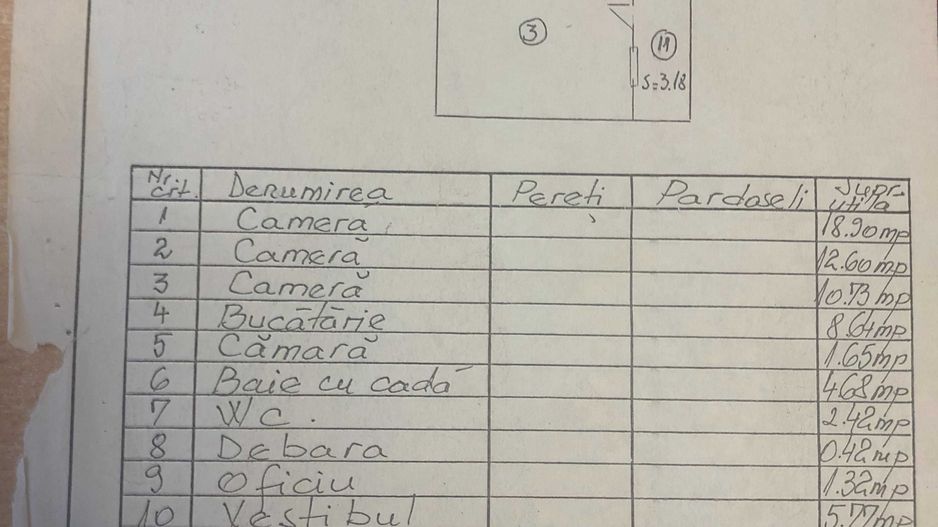 3
11
S=3.18
Nr. crt. Denumirea Pereti Pardoseli Supr. utila
1 Cameră 18.90mp
2 Cameră 12.60mp
3 Cameră 10.73mp
4 Bucătărie 8.64mp
5 Cămară 1.65mp
6 Baie cu cadă 4.68mp
7 WC. 2.42mp
8 Debara 0.42mp
9 Oficiu 1.32mp
10 Vestibul 5.77mp